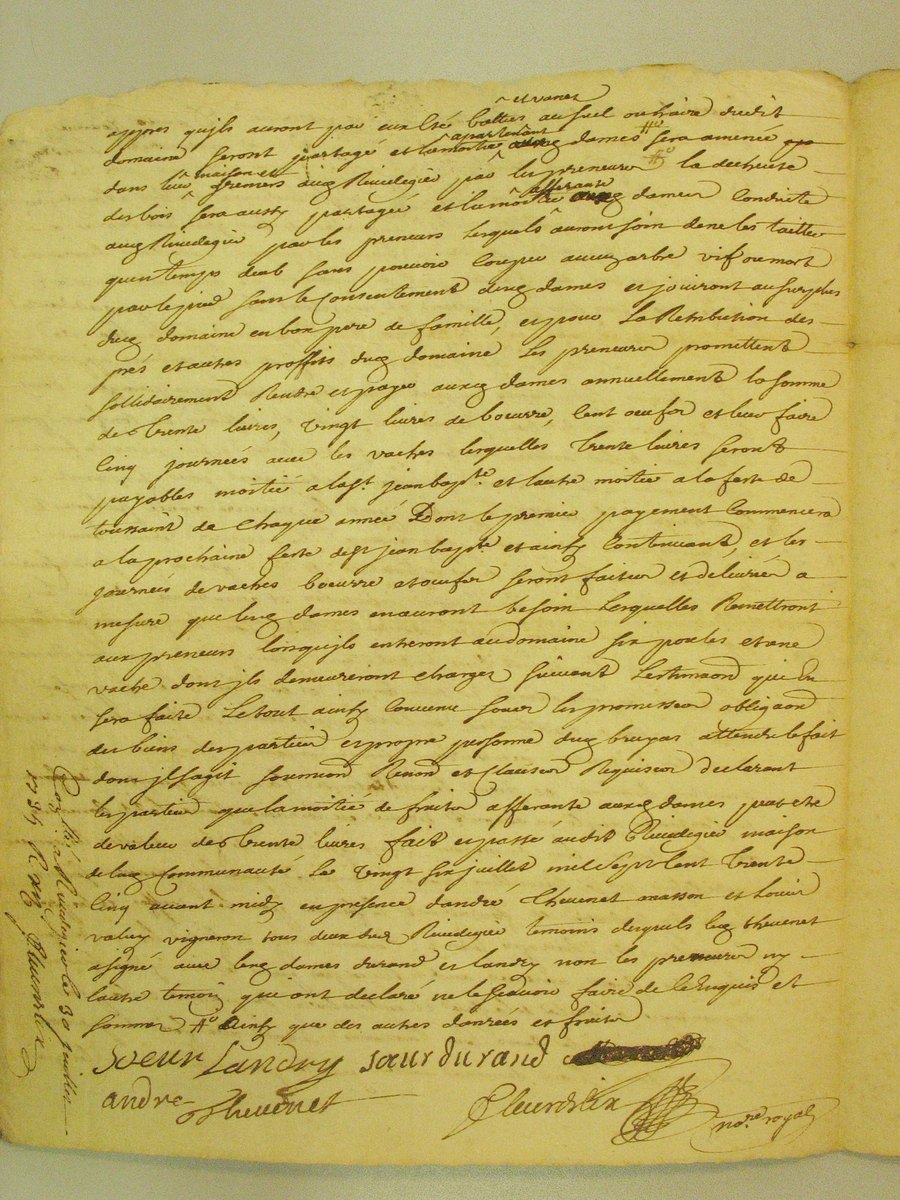 et vanet
appres qu'ils auront par eux esté battes au fuel ou haire dudit
apartenant
domaine seront partagé et la moitié dames sera amenée
maison et
dans leur greniers audt Rivedegier par les preneurs la decheute
afferante
des bois sera aussy partagée et la moitié dames Conduite
audt Rivedegier par les preneurs lesquels auront soin de ne les tailler
qu'en temps deub sans pouvoir Couper aucuy arbre vif ou mort
par le pied sans le Consentement desd dames et jouiront au surplus
dud domaine en bon pere de famille, et pour La Retribution des
prés et autres proffits dud domaine les preneurs promettent
sollidairement Rendre et payer auxd dames annuellement la somme
de trente livres, vingt livres de boeurre, Cent oeufs et leur faire
Cinq journées avec les vaches lesquelles trente livres seront
payables moitié a la st jean bapte. et lautre moitié a la feste de
toussaint de Chaque année Dont le premier payement Commencera
a la prochaine feste de st jean bapte et ainsy Continuant, et les
journées de vaches boeurre et oeufs seront faites et delivrés a
mesure que lesd dames en auront besoin Lesquelles Remettront
aux preneurs lorsqu'ils entreront au domaine six poules et une
vache dont ils demeureront charges suivant Lestimaon qui En
sera faite Le tout ainsy Convenu sous les promesses obligaons
des biens des parties et propre personne dud bruyas attendu le fait
dont il sagit soumions Renons et Clauses Requises declarant
les parties que la moitié de fruits afferante auxd dames peut etre
de valeur de trente livres fait et passé audit Rivedegier maison
de lad Communauté Le vingt six juillet mil sept Cent trente
Cinq avant midy en presence d'andré thevenet masson et Louis
valuy vigneron tous deux dud Rivedegier temoins desquels led thevenet
a signé avec lesd dames durand et landry non les preneurs ny
lautre temoin qui ont declaré ne le sçavoir faire de ce Enquis et
sommes # Ainsy que des autres danrées et fruits
soeur Landry soeur durand
andre thevenet
Fleurdelix nore. royal
Conllé a Rivedegier le 30 juillet
1735 R Fleurdelix